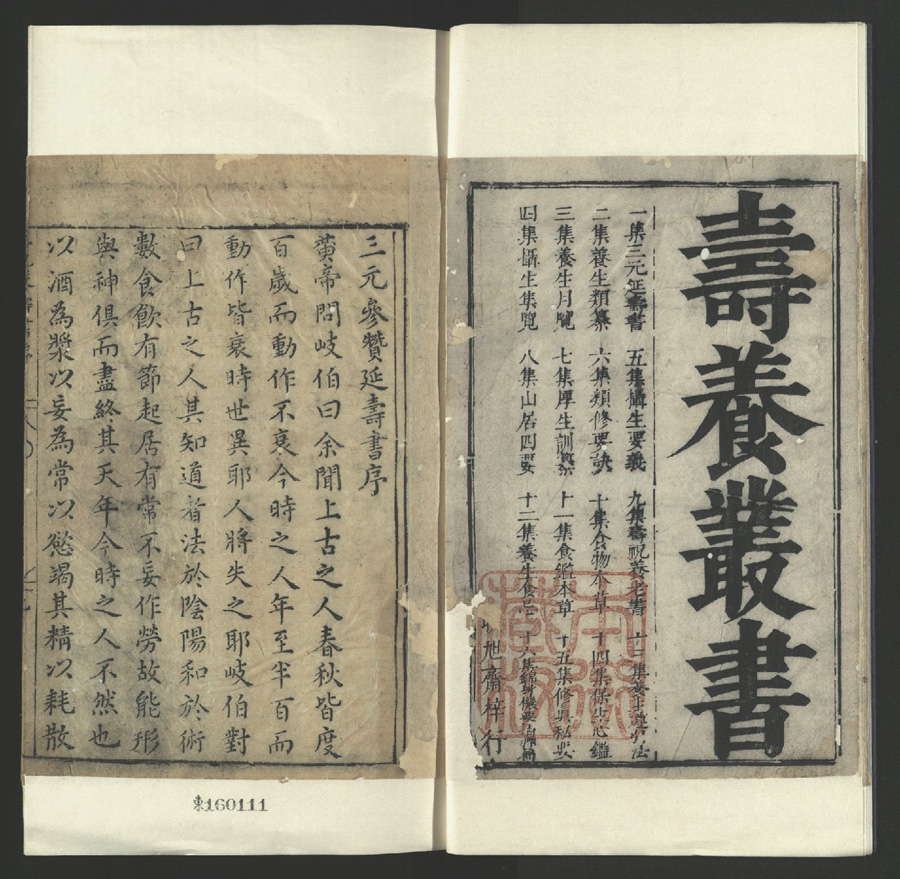 壽養叢書
一集三元延壽書　五集攝生要義　九集壽親養老書
二集養生類纂　六集類修要訣　十集食物本草　十四集保生心鑑
三集養生月覽　七集厚生訓纂　十一集食鑑本草　十五集修真秘要
四集攝生集覽　八集山居四要　十二集養生食忌
旭齋梓行
三元參贊延壽書序
黃帝問岐伯曰余聞上古之人春秋皆度
百歲而動作不衰今時之人年至半百而
動作皆衰時世異耶人將失之耶岐伯對
曰上古之人其知道者法於陰陽和於術
數食飲有節起居有常不妄作勞故能形
與神俱而盡終其天年今時之人不然也
以酒為漿以妄為常以慾竭其精以耗散
東160111